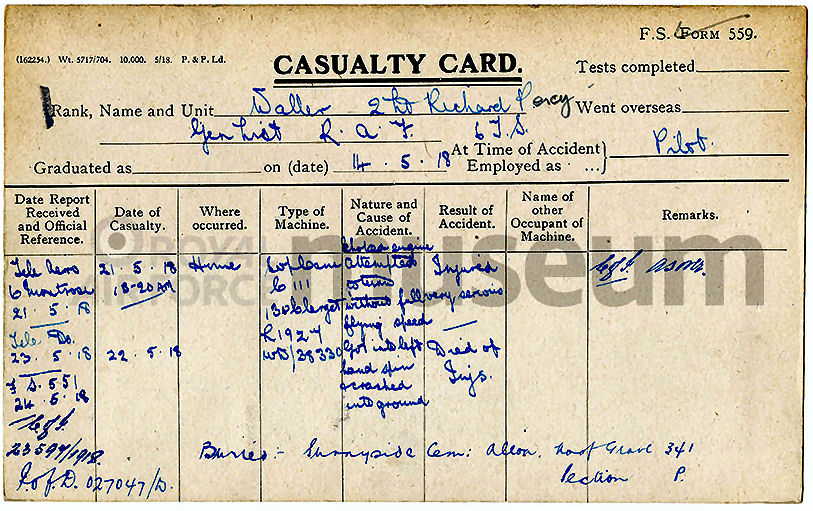 F.S. Form 559.
(162254.) Wt. 5717/704. 10,000. 5/18. P. & P. Ld.
CASUALTY CARD.
Tests completed
Rank, Name and Unit Waller 2 Lt Richard Percy
Went overseas
Gen List R. A. F. 6 T.S.
Graduated as on (date) 14 . 5 . 18
At Time of Accident
Employed as ... Pilot.
Date Report Received and Official Reference.
Date of Casualty.
Where occurred.
Type of Machine.
Nature and Cause of Accident.
Result of Accident.
Name of other Occupant of Machine.
Remarks.
Tele Aero
6 Montrose
21 . 5 . 18
Tele Do.
23 . 5 . 18
F.S. 551
24 . 5 . 18
23597/1918.
P. of D. 027047/D.
21 . 5 . 18
22 . 5 . 18
Home
130 Clerget
R1927
WD/38330
Choked engine
Attempted
to turn
without full
flying speed
Got into left
hand spin
& crashed
into ground
Injured
very serious
Died of
Injs.
Buried :- Sunnyside Cem: No of Grave 341
Section P.
ROYAL
AIR FORCE
museum